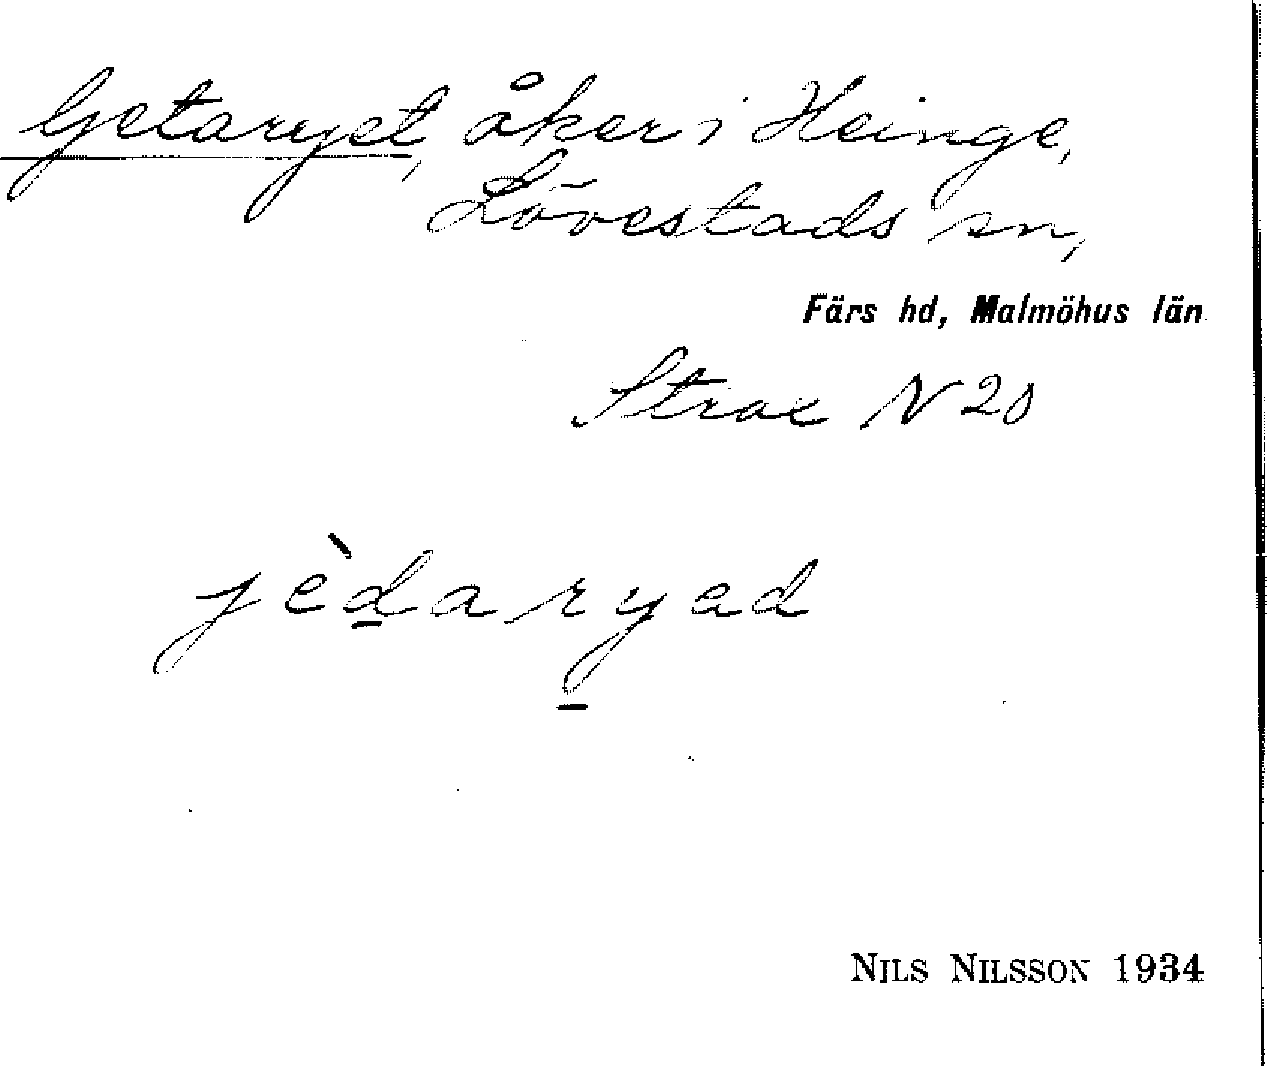 Getaryet, åker i Heinge,
Lövestads sn,
Färs hd, Malmöhus län
N 20
jèdaryad
NILS NILSSON 1934